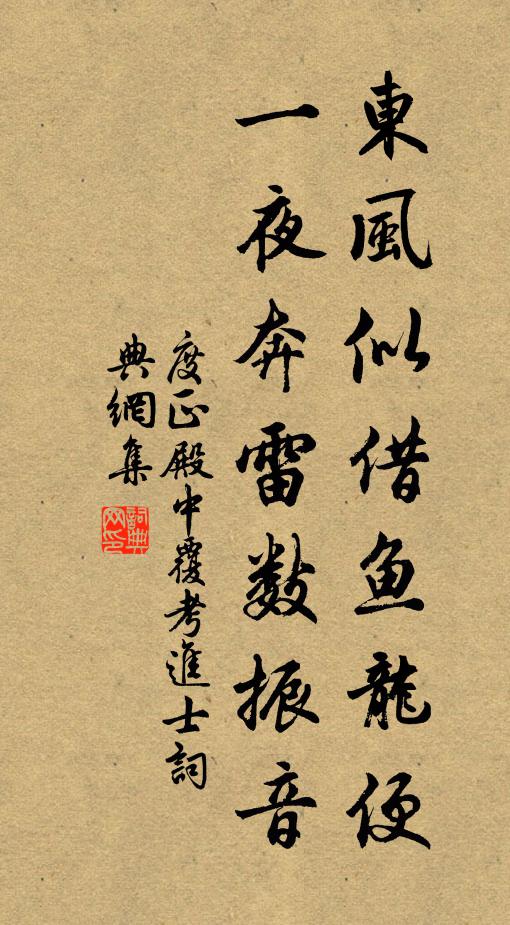 東風似借魚龍便
一夜奔雷数振音
度正殿中覆考進士詞
典網集
詞典
网印